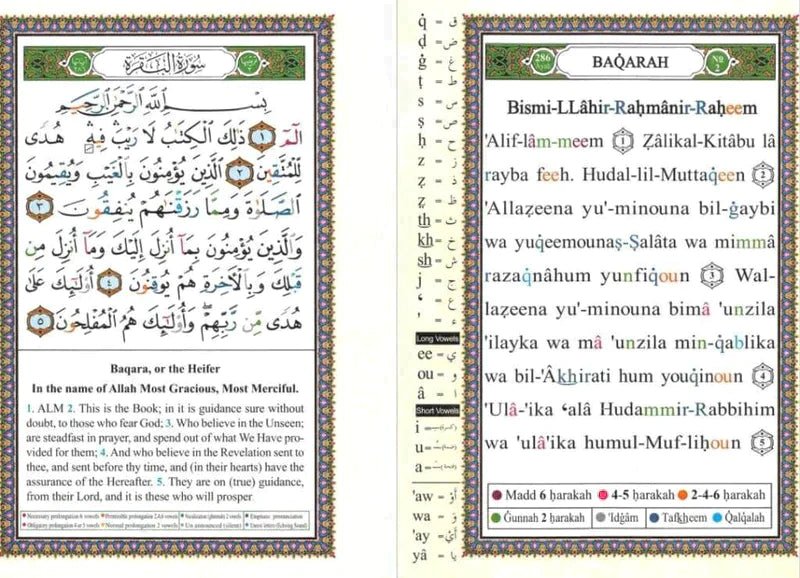 سُورَةُ البَقَرَةِ
بِسْمِ ٱللَّهِ ٱلرَّحْمَٰنِ ٱلرَّحِيمِ
الٓمٓ ١ ذَٰلِكَ ٱلْكِتَٰبُ لَا رَيْبَ ۛ فِيهِ ۛ هُدًى
لِّلْمُتَّقِينَ ٢ ٱلَّذِينَ يُؤْمِنُونَ بِٱلْغَيْبِ وَيُقِيمُونَ
ٱلصَّلَوٰةَ وَمِمَّا رَزَقْنَٰهُمْ يُنفِقُونَ ٣
وَٱلَّذِينَ يُؤْمِنُونَ بِمَآ أُنزِلَ إِلَيْكَ وَمَآ أُنزِلَ مِن
قَبْلِكَ وَبِٱلْءَاخِرَةِ هُمْ يُوقِنُونَ ٤ أُو۟لَٰٓئِكَ عَلَىٰ
هُدًى مِّن رَّبِّهِمْ ۖ وَأُو۟لَٰٓئِكَ هُمُ ٱلْمُفْلِحُونَ ٥
Baqara, or the Heifer
In the name of Allah Most Gracious, Most Merciful.
1. ALM 2. This is the Book; in it is guidance sure without
doubt, to those who fear God; 3. Who believe in the Unseen;
are steadfast in prayer, and spend out of what We have pro-
vided for them; 4. And who believe in the Revelation sent to
thee, and sent before thy time, and (in their hearts) have the
assurance of the Hereafter. 5. They are on (true) guidance,
from their Lord, and it is these who will prosper
Necessary prolongation 6 vowels Permissible prolongation 2,4,6 vowels Nasalization (ghunnah) 2 vowels Emphatic pronunciation
Obligatory prolongation 4 or 5 vowels Normal prolongation 2 vowels Un announced (silent)
q̇ ق
ḍ ض
ġ غ
ṭ ط
s س
ṣ ص
ḥ ح
z ز
ẓ ذ
ẓ ظ
th ث
kh خ
sh ش
j ج
‘ ع
' ء
Long Vowels
ee ي
ou و
â ا
Short Vowels
i
u
a
'aw أَوْ
wa وَ
'ay أَيْ
yâ يا
286 BAQ̇ARAH Nº 2
Bismi-LLâhir-Raḥmânir-Raḥeem
'Alif-lâm-meem 1 Ẓâlikal-Kitâbu lâ
rayba feeh. Hudal-lil-Muttaq̇een 2
'Allaẓeena yu'-minouna bil-ġaybi
wa yuq̇eemounaṣ-Ṣalâta wa mimmâ
razaq̇nâhum yunfiq̇oun 3 Wal-
laẓeena yu'-minouna bimâ 'unzila
'ilayka wa mâ 'unzila min-q̇ablika
wa bil-'Âkhirati hum youq̇inoun 4
'Ulâ-'ika ‘alâ Hudammir-Rabbihim
wa 'ulâ'ika humul-Muf-liḥoun 5
Madd 6 ḥarakah 4-5 ḥarakah 2-4-6 ḥarakah
Ġunnah 2 ḥarakah 'Idġâm Tafkheem Q̇alq̇alah